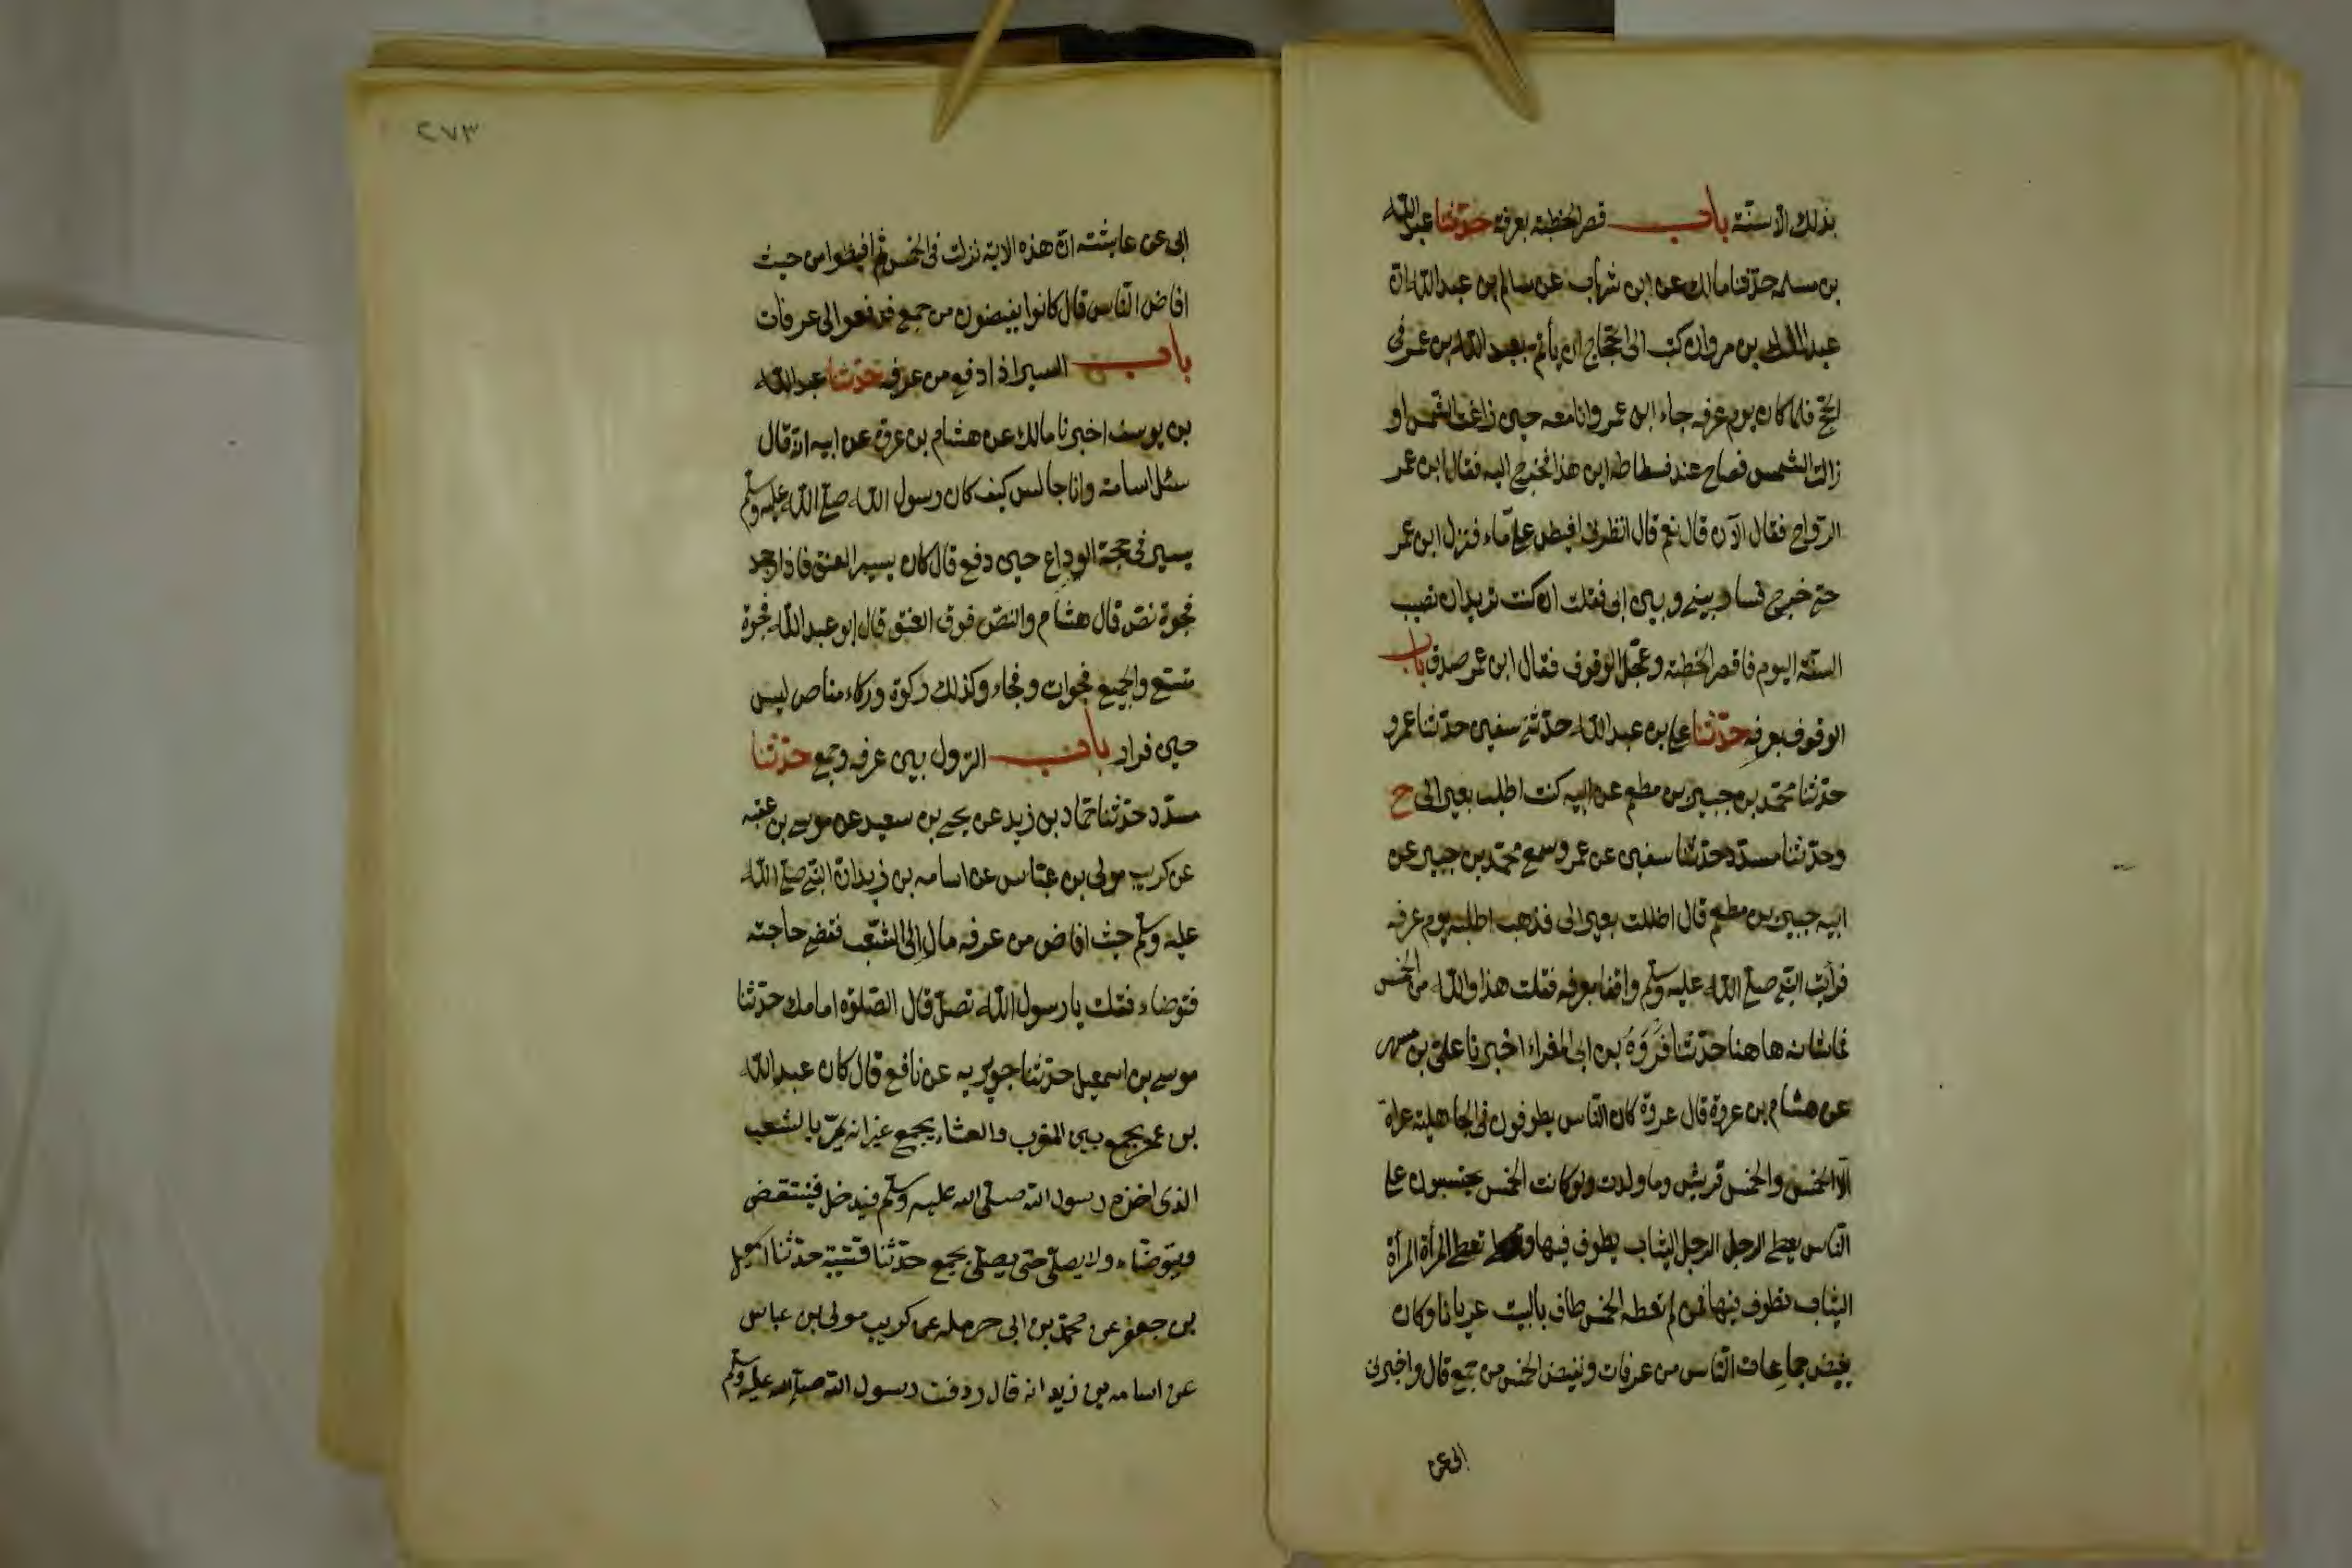 بذلك الا سنته باب قصر الخطبة بعرفة حدثنا عبد الله
بن مسلمه حدثنا مالك عن ابن شهاب عن سالم بن عبد الله ان
عبد الملك بن مروان كتب الى الحجاج ان يأتم بعبد الله بن عمر فى
الحج فلما كان يوم عرفه جاء ابن عمر وانا معه حين زاغت الشمس او
زالت الشمس فصاح عند فسطاطه اين هذا فخرج اليه فقال ابن عمر
الرواح فقال الآن قال نعم قال انظرنى افيض على ماء فنزل ابن عمر
حتى خرج فسار بينى وبين ابى فقلت ان كنت تريد ان تصيب
السنة اليوم فاقصر الخطبة وعجل الوقوف فقال ابن عمر صدق باب
الوقوف بعرفه حدثنا على بن عبد الله حدثنى سفين حدثنا عمرو
حدثنا محمد بن جبير بن مطعم عن ابيه كنت اطلب بعيرا لى ح
وحدثنا مسدد حدثنا سفين عن عمرو سمع محمد بن جبير عن
ابيه جبير بن مطعم قال اضللت بعيرا لى فذهبت اطلبه يوم عرفه
فرأيت النبى صلى الله عليه وسلم واقفا بعرفه فقلت هذا والله من الحمس
فما شانه هاهنا حدثنا فروة بن ابى المغراء اخبرنا على بن مسهر
عن هشام بن عروة قال عروة كان الناس يطوفون فى الجاهلية عراة
الا الحمس والحمس قريش وما ولدت وكانت الحمس يحتسبون على
الناس يعطى الرجل الرجل الثياب يطوف فيها وتعطى المرأة المرأة
الثياب تطوف فيها فمن لم تعطه الحمس طاف بالبيت عريانا وكان
يفيض جماعات الناس من عرفات وتفيض الحمس من جمع قال واخبرنى
ابى عن
٢٧٣
ابى عن عايشته ان هذه الاية نزلت فى الحمس ثم افيضوا من حيث
افاض الناس قال كانوا يفيضون من جمع فدفعوا الى عرفات
باب السير اذا دفع من عرفه حدثنا عبد الله
بن يوسف اخبرنا مالك عن هشام بن عروة عن ابيه انه قال
سئل اسامة وانا جالس كيف كان رسول الله صلى الله عليه وسلم
يسير فى حجة الوداع حين دفع قال كان يسير العنق فاذا وجد
فجوة نص قال هشام والنص فوق العنق قال ابو عبد الله فجوة
متسع والجميع فجوات وفجاء وكذلك ركوة وركاء مناص ليس
حين فرار باب النزول بين عرفه وجمع حدثنا
مسدد حدثنا حماد بن زيد عن يحيى بن سعيد عن موسى بن عقبه
عن كريب مولى بن عباس عن اسامه بن زيد ان النبى صلى الله
عليه وسلم حيث افاض من عرفه مال الى الشعب فقضى حاجته
فتوضاء فقلت يا رسول الله تصل قال الصلوة امامك حدثنا
موسى بن اسمعيل حدثنا جويريه عن نافع قال كان عبد الله
بن عمر يجمع بين المغرب والعشاء بجمع غير انه يمر بالشعب
الذى اخذه رسول الله صلى الله عليه وسلم فيدخل فينتفض
ويتوضاء ولا يصلى حتى يصلى بجمع حدثنا قتيبة حدثنا اسمعيل
بن جعفر عن محمد بن ابى حرمله عن كريب مولى بن عباس
عن اسامه بن زيد انه قال ردفت رسول الله صلى الله عليه وسلم